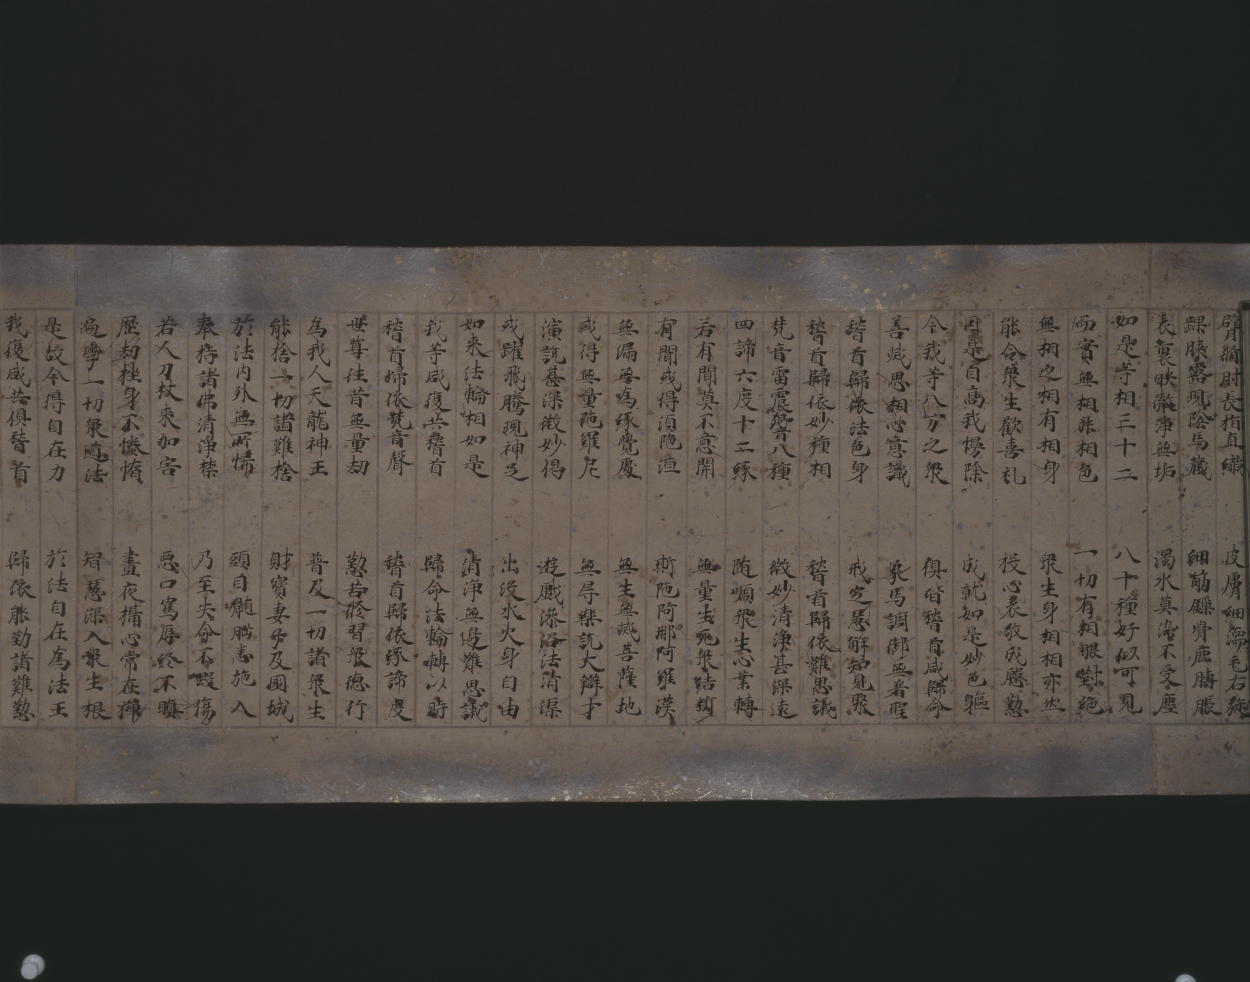 臂脩肘長指直纖 皮膚細濡毛右旋
踝膝露現陰馬藏 細筋鏁骨鹿膊脹
表裏映徹淨無垢 濁水莫染不受塵
如是等相三十二 八十種好似可見
而實無相非相色 一切有相眼對絕
無相之相有相身 衆生身相相亦然
能令衆生歡喜礼 投心表敬成慇懃
因是自高我慢除 成就如是妙色軀
今我等八万之衆 俱皆稽首咸歸命
善滅思想心意識 象馬調御無著聖
稽首歸依法色身 戒定慧解知見聚
稽首歸依妙種相 稽首歸依難思議
梵音雷震響八種 微妙清淨甚深遠
四諦六度十二緣 隨順衆生心業轉
若有聞莫不意開 無量生死衆結斷
有聞或得須陁洹 斯陁阿那阿羅漢
無漏無為緣覺處 無生無滅菩薩地
或得無量陁羅尼 無㝵樂說大辯才
演說甚深微妙偈 遊戲澡浴法清渠
或躍飛騰現神足 出沒水火身自由
如來法輪相如是 清淨無邊難思議
我等咸復共稽首 歸命法輪轉以時
稽首歸依梵音聲 稽首歸依緣諦度
世尊往昔無量劫 懃苦脩習衆德行
為我人天龍神王 普及一切諸衆生
能捨一切諸難捨 財寶妻子及國城
於法內外無所悋 頭目髓腦悉施人
奉持諸佛清淨禁 乃至失命不毀傷
若人刀杖來加害 惡口罵辱終不瞋
歷劫挫身不惓惰 晝夜攝心常在禪
遍學一切衆道法 智慧深入衆生根
是故今得自在力 於法自在為法王
我復咸共俱稽首 歸依能勤諸難懃